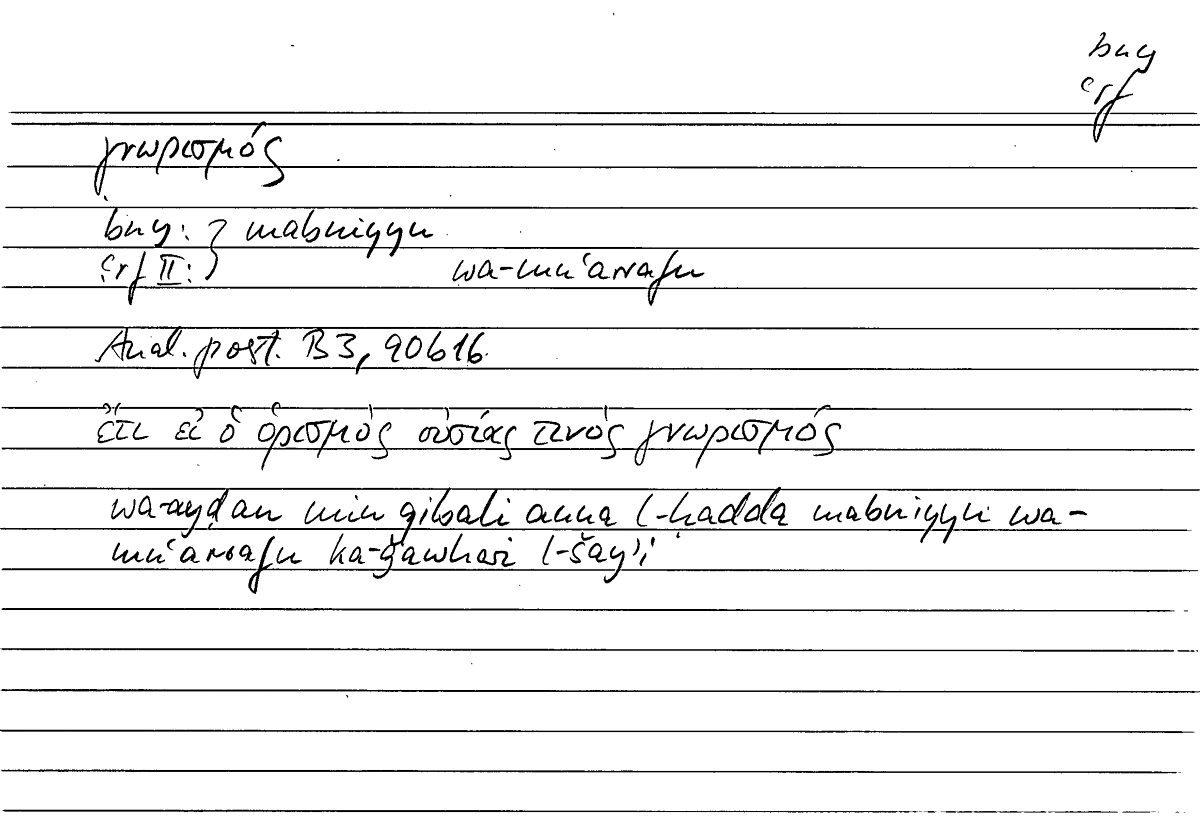 bny
ʿrf
γνωρισμός
bny: } mabniyyu
ʿrf II: } wa-muʿarrafu
Anal. post. B3, 90b16
ἔτι εἰ ὁ ὁρισμὸς οὐσίας τινὸς γνωρισμός
wa-ayḍan min qibali anna l-ḥadda mabniyyu wa-
muʿarrafu ka-ǧawhari l-šayʾi